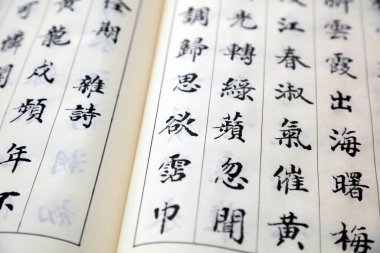 新雲霞出海曙梅
江春淑氣催黃
光轉綠蘋忽聞
調歸思欲霑巾
期 雜詩
黃龍戍頻年不
可憐